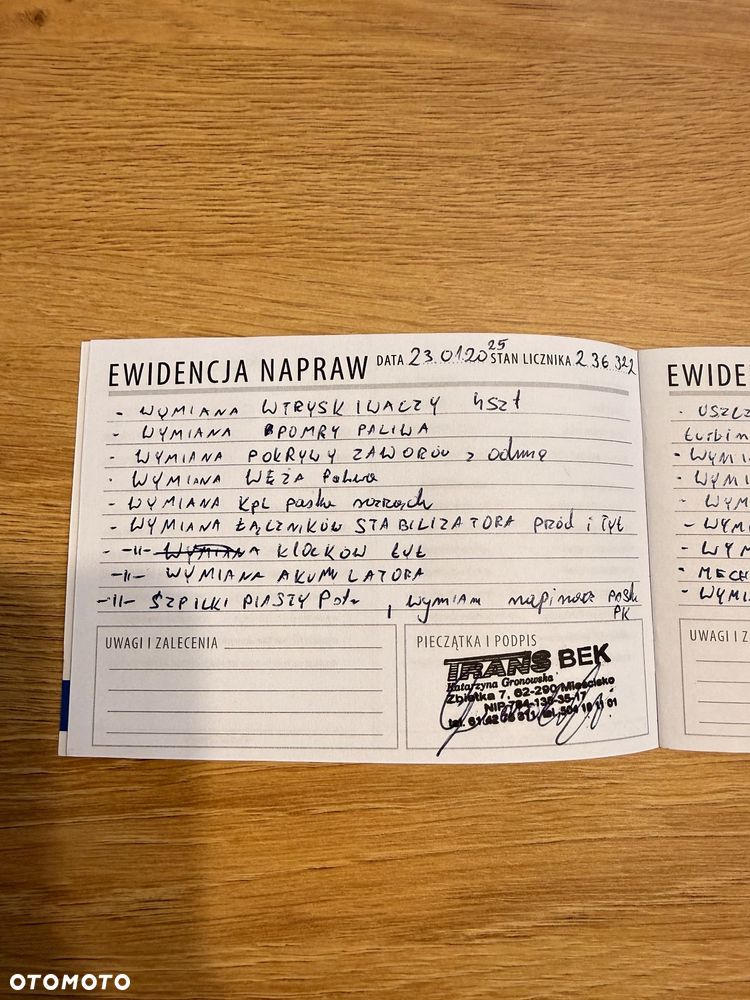 EWIDENCJA NAPRAW DATA 23.01.2025 STAN LICZNIKA 236 322
- WYMIANA WTRYSKIWACZY 4szt
- WYMIANA POMPY PALIWA
- WYMIANA POKRYWY ZAWORÓW z odmą
- WYMIANA WĘŻA Paliwa
- WYMIANA kpl paska rozrządu
- WYMIANA ŁĄCZNIKÓW STABILIZATORA przód i tył
-II- KLOCKÓW tył
-II- WYMIANA AKUMULATORA
-II- SZPILKI PIASTY , wymiana napinacz paska PK
UWAGI I ZALECENIA
PIECZĄTKA I PODPIS
TRANS BEK
Katarzyna Gronowska
Zbietka 7, 62-290 Mieścisko
NIP 784-135-35-17
EWIDE
- USZCZ
turbin
- WYMI
- WYMI
- WYM
- WYM
- WYM
- MECH
- WYMI
UWAGI I Z
OTOMOTO